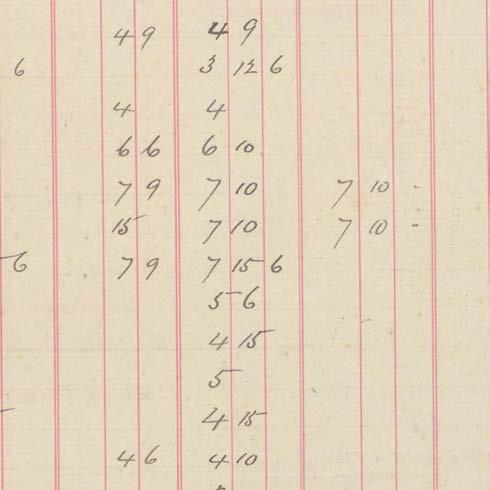 4 9 4 9
6 3 12 6
4 4
6 6 6 10
7 9 7 10 7 10 -
15 7 10 7 10 -
6 7 9 7 15 6
5 6
4 15
5
4 15
4 6 4 10